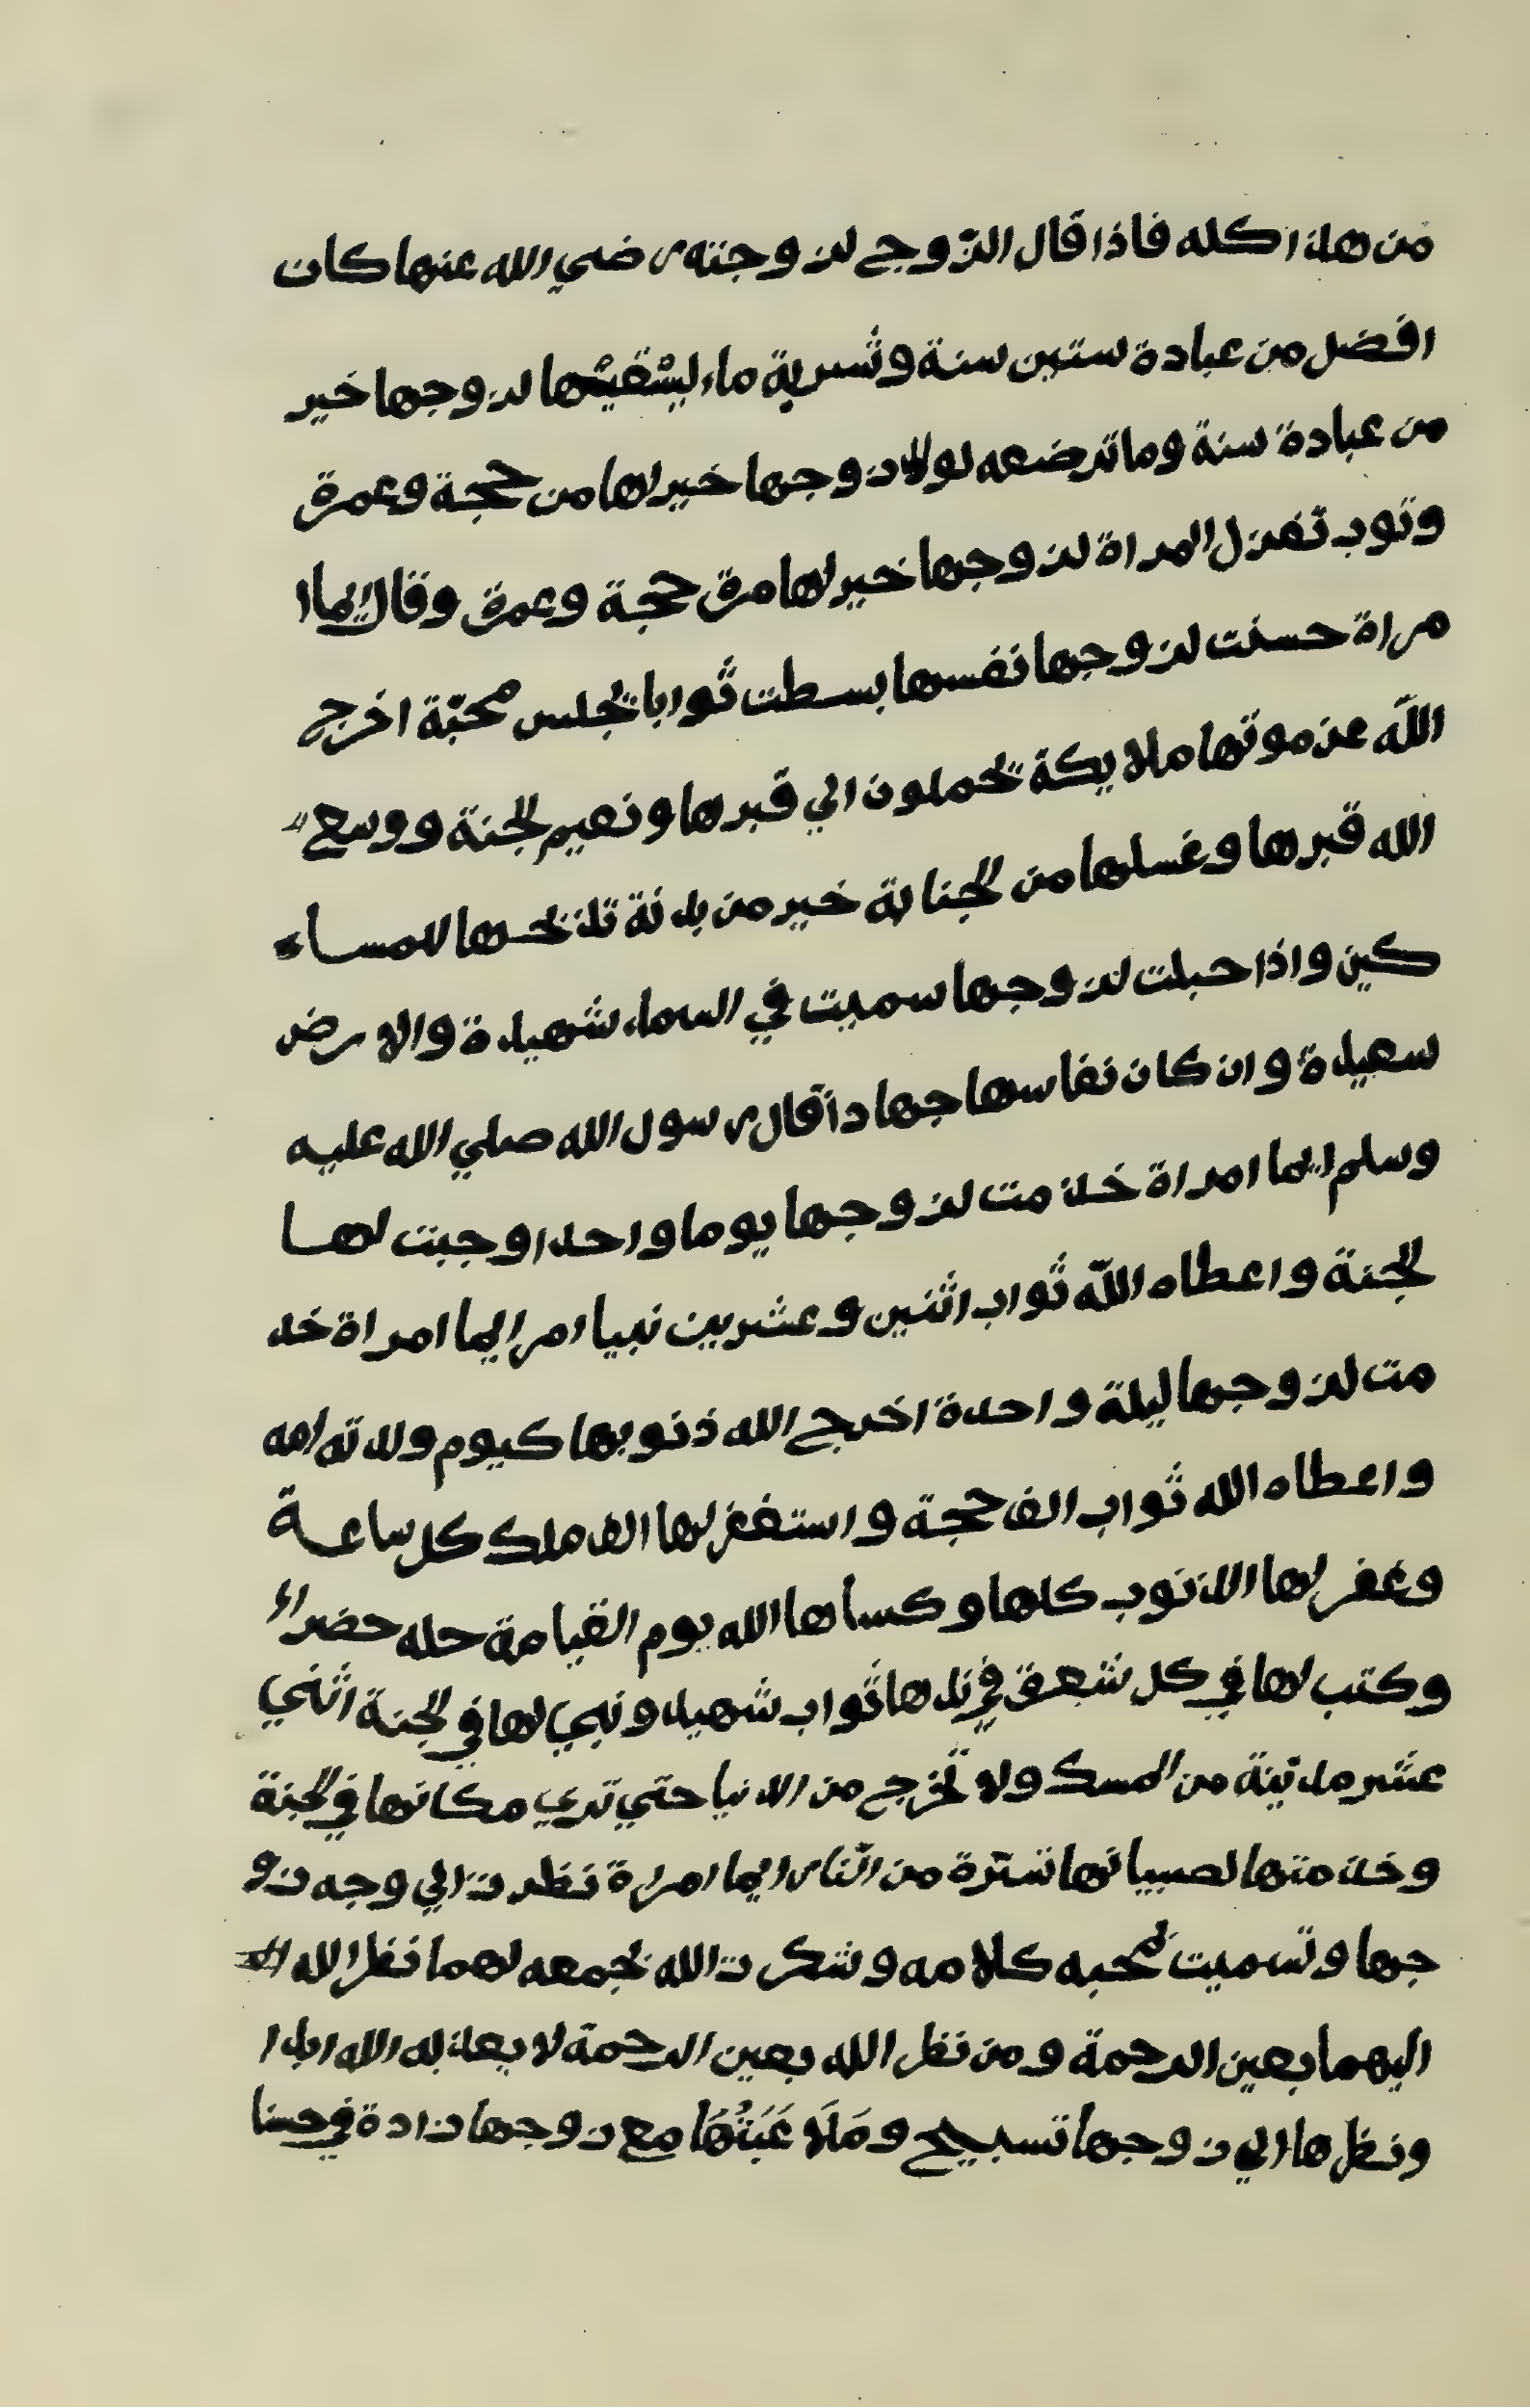 من هذا كله فاذا قال الزّوج لزوجته رضي الله عنها كان
افضل من عبادة ستين سنة وشربة ماء ليسقيها لزوجها خير
من عبادة سنة وما ترضعه لولاد زوجها خير لها من حجة وعمرة
وثوب تغزل المراة لزوجها خير لها مرة حجة وعمرة وقال ايما ا
مراة حسنت لزوجها نفسها بسطت ثوابا تجلس محبّة اخرج
اللّه عن موتها ملايكة تحملون الي قبرها ونعيم لجنة ووسع
الله قبرها وغسلها من لجنابة خير من بدنة تذبحها لامسا
كين واذا حبلت لزوجها سميت في السماء شهيدة والارض
سعيدة وان كان نفاسها جهاد أقال رسول الله صلي الله عليه
وسلم ايما امراة خدمت لزوجها يوما واحدا وجبت لها
لجنة واعطاه اللّه ثواب اثنين وعشرين نبيا امر ايما امراة خد
مت لزوجها ليلة واحدة اخرج الله ذنوبها كيوم ولدته امه
واعطاه الله ثواب الف حجة واستغفر لها الف ملك كل ساعة
وغفر لها الذنوب كلها وكساها الله يوم القيامة حله خضراء
وكتب لها في كل شعرة في بدها ثواب شهيد ونبي لها في لجنة اثني
عشر مدينة من المسك ولا تخرج من الدنيا حتي تري مكانها في لجنة
وخدمتها لصبيانها سترة من النار ايما امراة نظرت الي وجه زو
جها وتسميت لمحبه كلامه وشكرت الله بجمعه لهما نظر الله
اليهما بعين الرحمة ومن نظر الله بعين الرحمة لا يعذبه الله ابدا
ونظرها الي زوجها تسبيح ومَلَا عَبَتُهَا مع زوجها زادة في حسنا